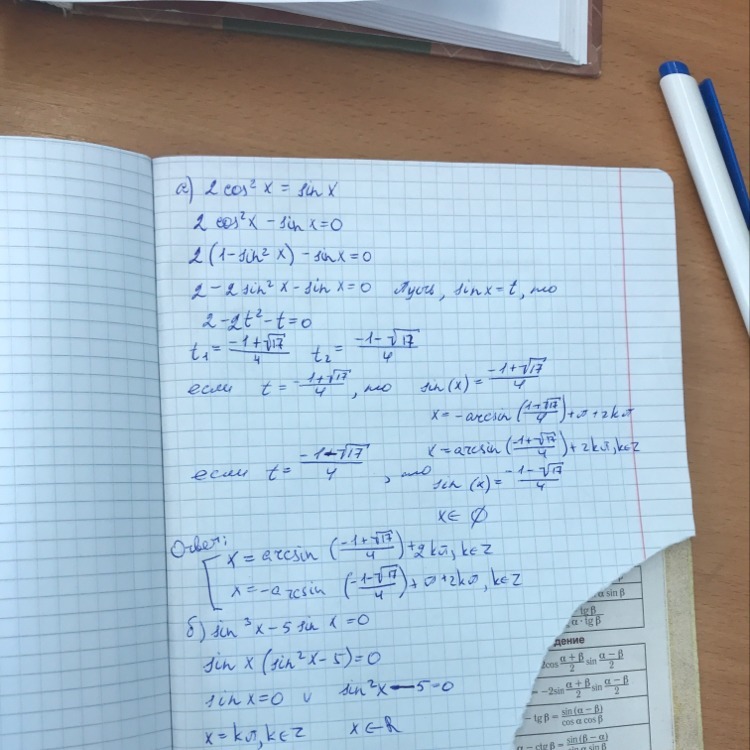 а) 2 cos² x = sin x
2 cos² x - sin x = 0
2 (1 - sin² x) - sin x = 0
2 - 2 sin² x - sin x = 0 Пусть, sin x = t, то
2 - 2t² - t = 0
t₁ = (-1+√17)/4 t₂ = (-1-√17)/4
если t = (-1+√17)/4, то sin(x) = (-1+√17)/4
x = -arcsin((-1+√17)/4) + π + 2kπ
x = arcsin((-1+√17)/4) + 2kπ, k∈Z
если t = (-1-√17)/4, то sin(x) = (-1-√17)/4
x ∈ ∅
Ответ:
[ x = arcsin((-1+√17)/4) + 2kπ, k∈Z
x = -arcsin((-1-√17)/4) + π + 2kπ, k∈Z
б) sin³ x - 5 sin x = 0
sin x (sin² x - 5) = 0
sin x = 0 ∪ sin² x - 5 = 0
x = kπ, k∈Z x ∈ R
α sin β
tg β
α · tg β
дение
2cos (α + β)/2 sin (α - β)/2
= -2sin (α + β)/2 sin (α - β)/2
- tg β = sin (α - β)/(cos α cos β)
α - ctg β = sin (β - α)/(sin α sin β)